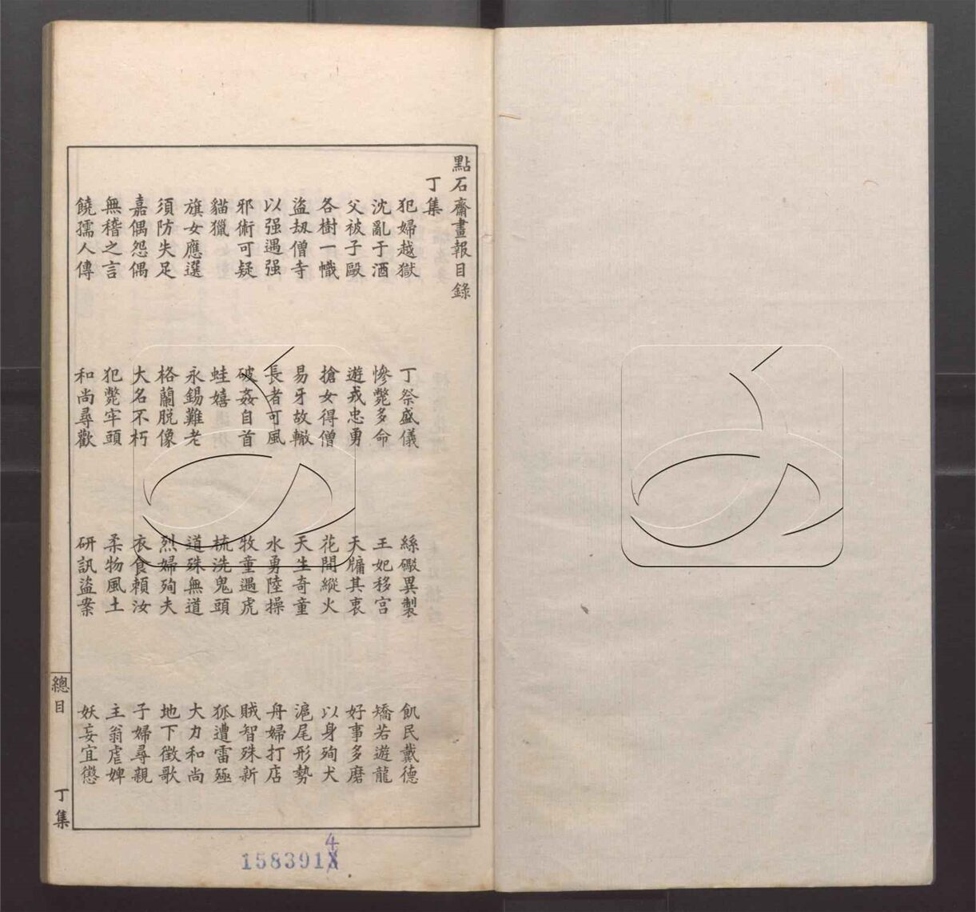 點石齋畫報目錄
丁集
犯婦越獄 丁祭盛儀 絲礮異製 飢民戴德
沈亂于酒 慘斃多命 王妃移宮 矯若遊龍
父被子毆 遊戎忠勇 天牖其衷 好事多磨
各樹一幟 搶女得僧 花開縱火 以身殉犬
盜劫僧寺 易牙故轍 天生奇童 滬尾形勢
以强遇强 長者可風 水勇陸操 舟婦打店
邪術可疑 破姦自首 牧童遇虎 賊智殊新
貓獵 蛙嬉 梳洗鬼頭 狐遭雷殛
旗女應選 永錫難老 道殊無道 大力和尚
須防失足 格蘭脱像 烈婦殉夫 地下徵歌
嘉偶怨偶 大名不朽 衣食賴汝 子婦尋親
無稽之言 犯斃牢頭 柔物風土 主翁虐婢
饒孺人傳 和尚尋歡 研訊盜案 妖妄宜懲
總目 丁集
1583914